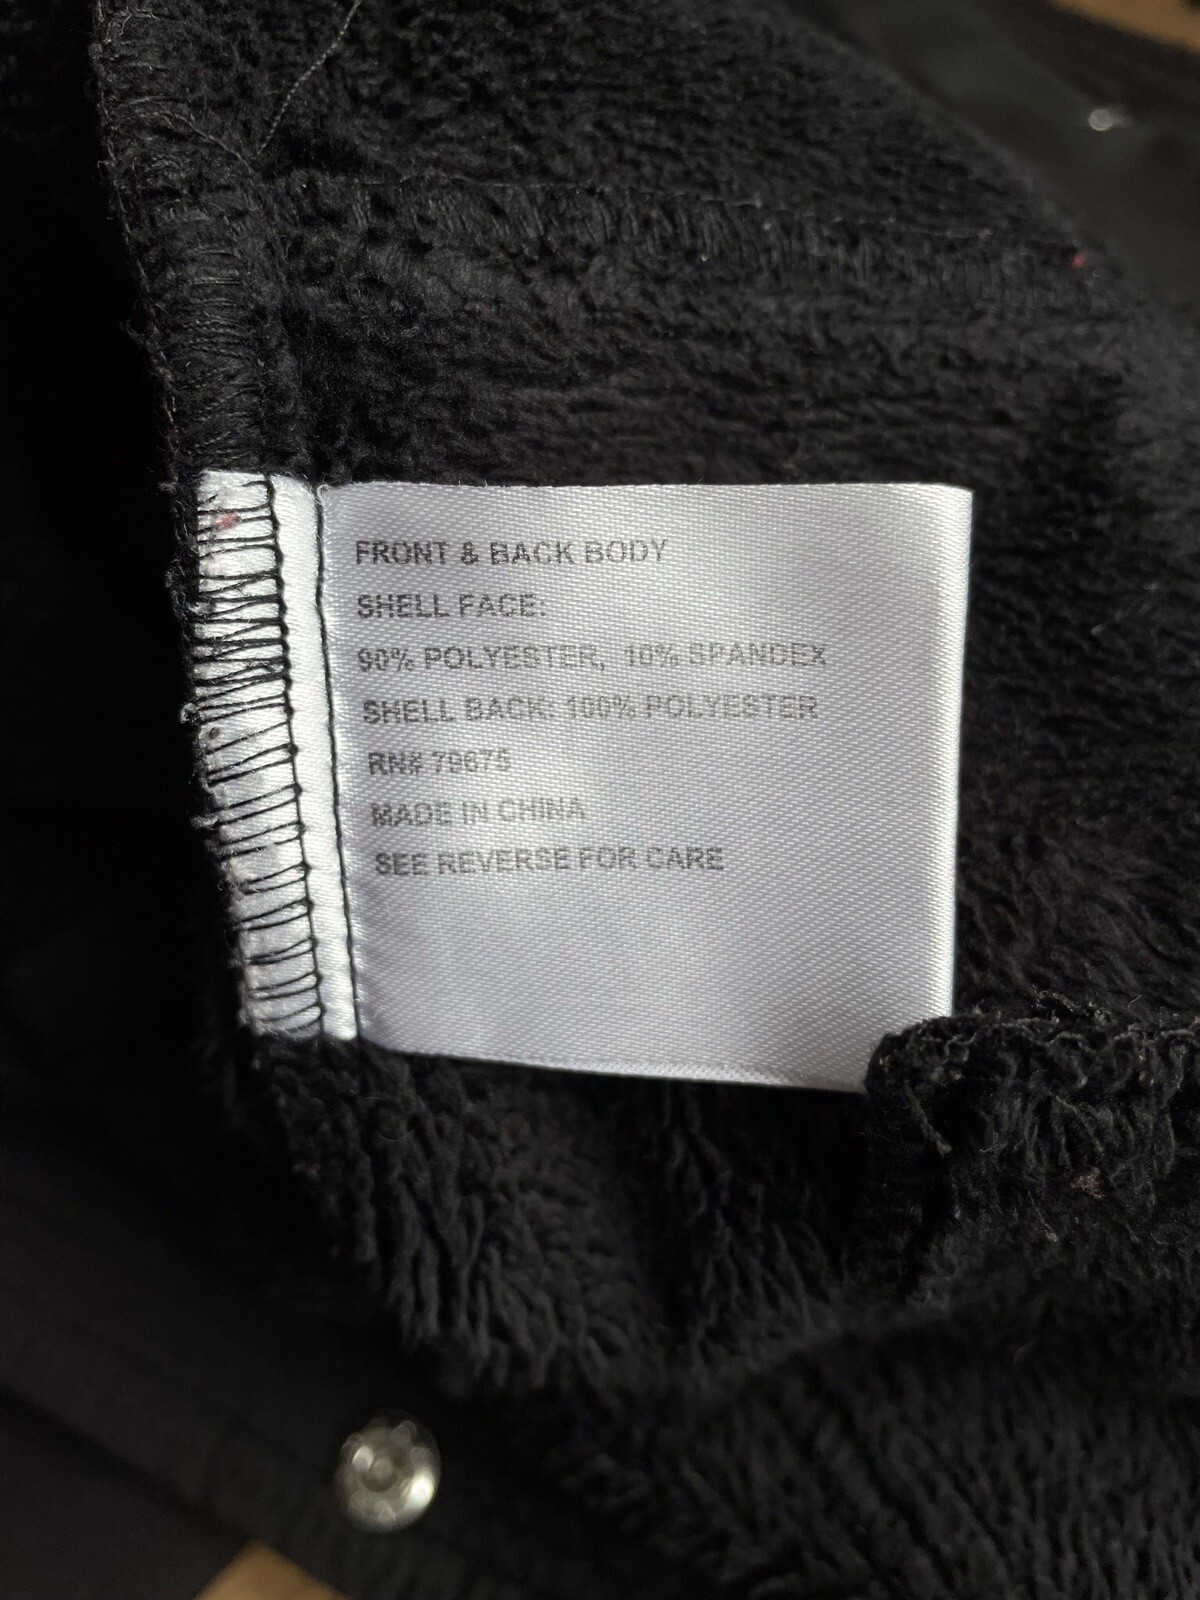 FRONT & BACK BODY
SHELL FACE:
90% POLYESTER, 10% SPANDEX
SHELL BACK: 100% POLYESTER
RN# 79675
MADE IN CHINA
SEE REVERSE FOR CARE